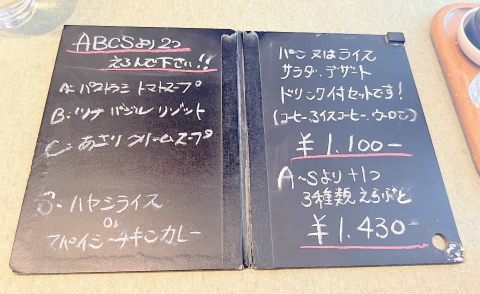 ABCSより2つ
えらんで下さい!!
A: パストラミ トマトスープ
B: ツナ バジル リゾット
C: あさり クリームスープ
S: ハヤシライス
or
スパイシーチキンカレー
パン又はライス
サラダ・デザート
ドリンク付セットです!
(コーヒー、アイスコーヒー、ウーロンで)
¥1.100-
A〜Sより+1つ
3種類えらぶと
¥1.430-